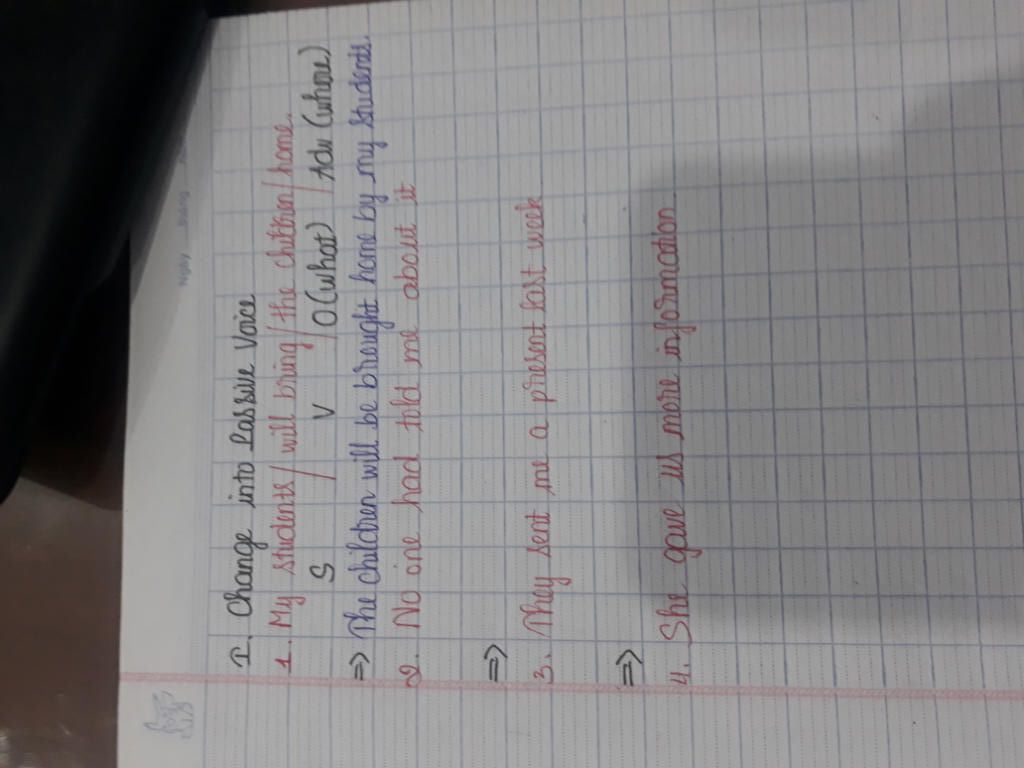 Ngày
I. Change into Passive Voice
1. My students / will bring / the children / home.
S / V / O (what) / Adv (where)
=> The children will be brought home by my students.
2. No one had told me about it
=>
3. They sent me a present last week
=>
4. She gave us more information